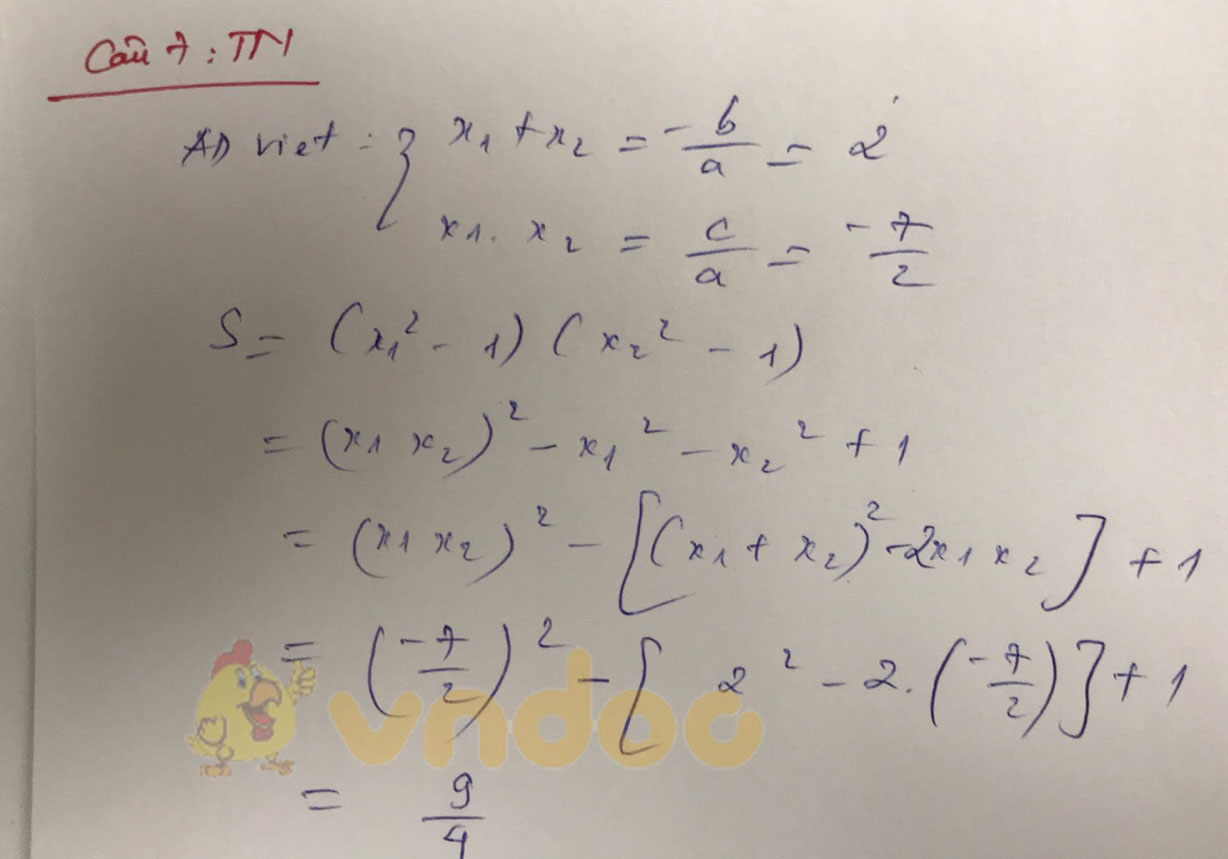 Câu 7: TN
AD viet: { x₁ + x₂ = -b/a = 2
x₁. x₂ = c/a = -7/2
S = (x₁² - 1)(x₂² - 1)
= (x₁ x₂)² - x₁² - x₂² + 1
= (x₁ x₂)² - [(x₁ + x₂)² - 2x₁ x₂] + 1
= (-7/2)² - [2² - 2.(-7/2)] + 1
vndoc
= 9/4